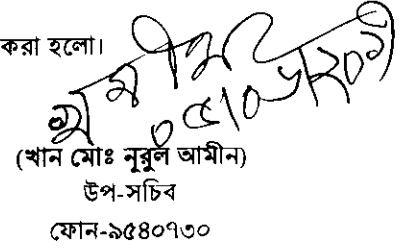 করা হলো।
(খান মোঃ নুরুল আমীন)
উপ-সচিব
ফোন-৯৫৪০৭৩০